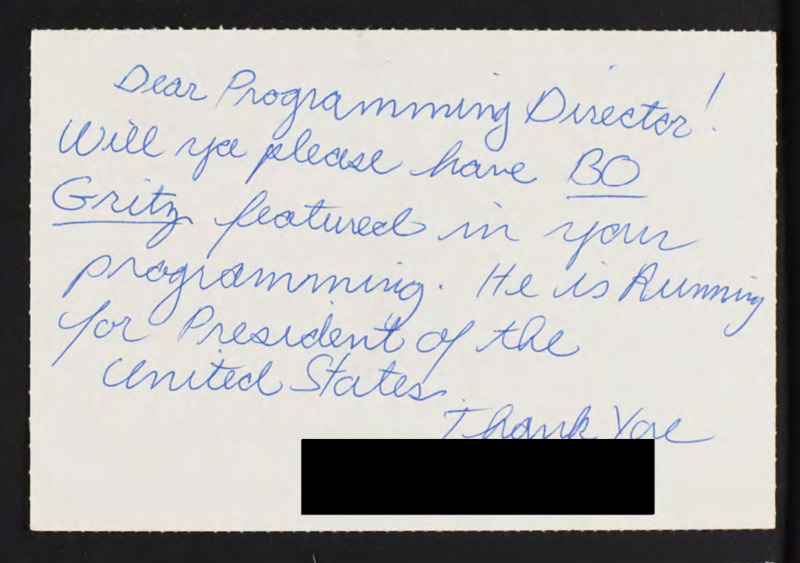 Dear Programming Director!
Will you please have BO
Gritz featured in your
programming. He is Running
for President of the
United States.
Thank You